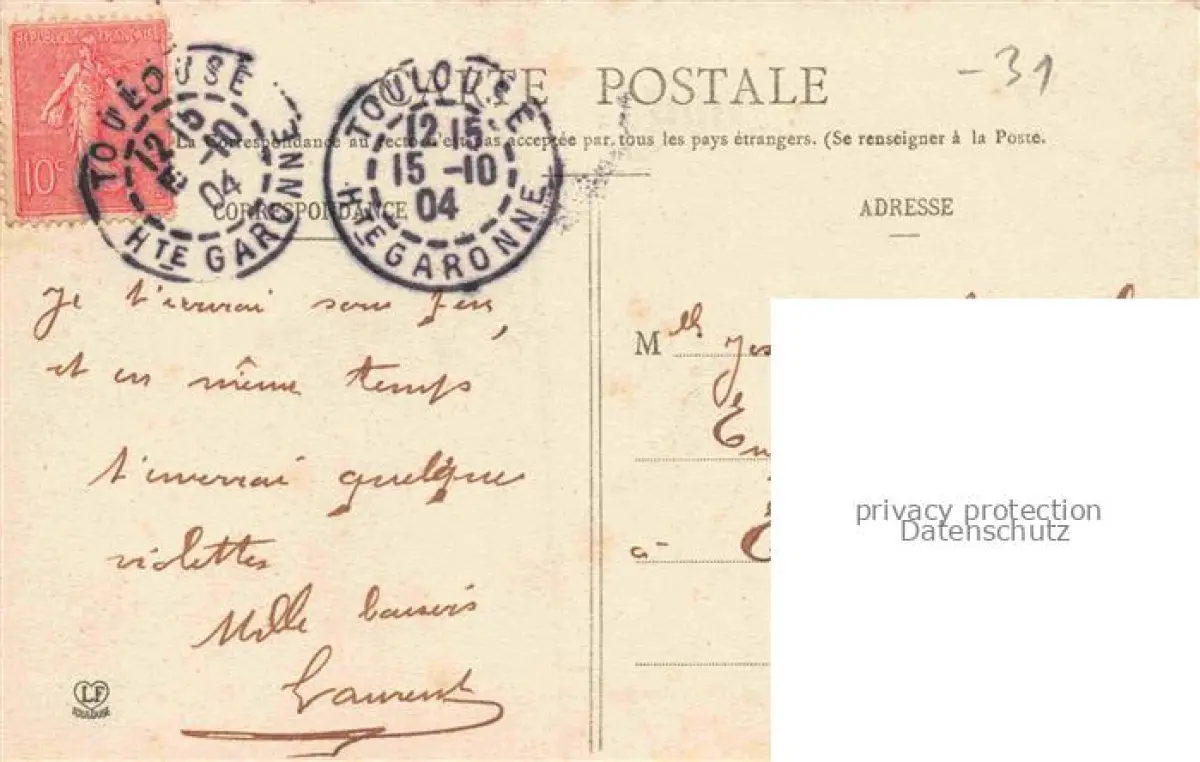 REPUBLIQUE FRANÇAISE
10c
TOULOUSE
12 15
15 -10
04
HTE GARONNE
TOULOUSE
12 15
15 -10
04
HTE GARONNE
CARTE POSTALE
-31
La Correspondance au recto n'est pas acceptée par tous les pays étrangers. (Se renseigner à la Poste.
CORRESPONDANCE
ADRESSE
Je t'ecrirai sous peu,
et en même temps
t'enverrai quelques
violettes
Mille baisers
Laurent
Mlle
à
LF
TOULOUSE
privacy protection
Datenschutz